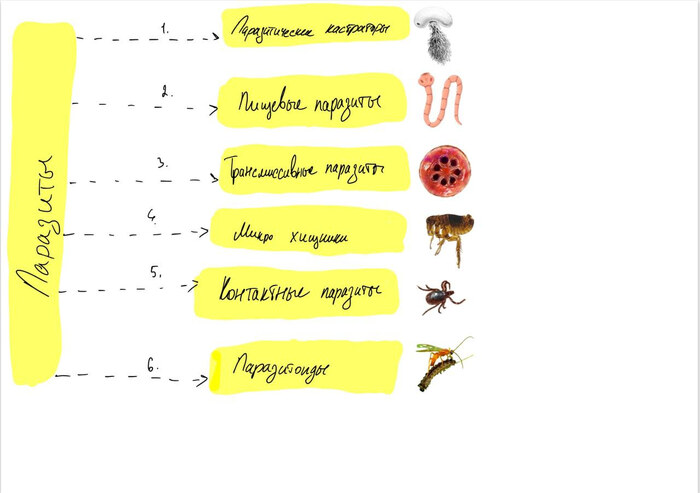 Паразиты
1. Паразитические кастраторы
2. Пищевые паразиты
3. Трансмиссивные паразиты
4. Микро хищники
5. Контактные паразиты
6. Паразитоиды